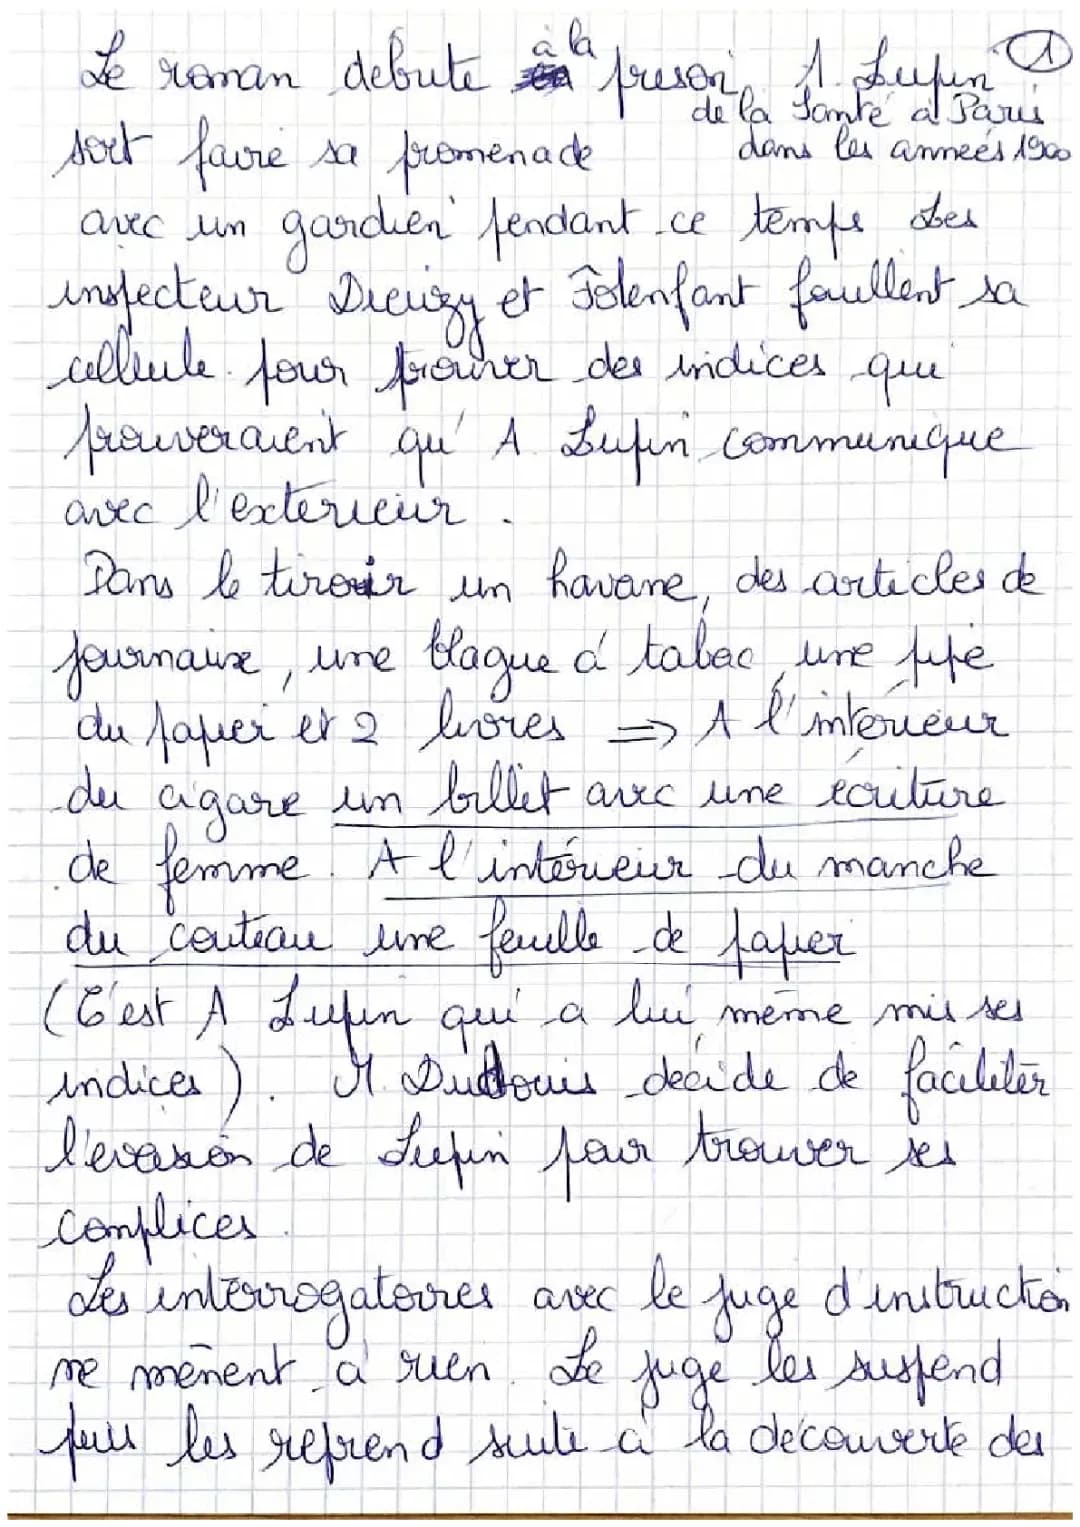 Le roman debute à la prison, A. Lupin ①
de la Santé à Paris
sort faire sa promenade dans les années 1900
avec un gardien pendant ce temps les
inspecteur Dieuzy et Folenfant fouillent sa
cellule pour trouver des indices qui
prouveraient qu' A Lupin communique
avec l'exterieur.
Dans le tiroir un havane, des articles de
journaux, une blague à tabac, une pipe
du papier et 2 livres => A l'interieur
du cigare un billet avec une écriture
de femme. A l'intérieur du manche
du couteau une feuille de papier
(C'est A Lupin qui a lui même mis ses
indices). M. Dudouis décide de faciliter
l'evasion de Lupin pour trouver ses
complices.
Les interrogatoires avec le juge d'instruction
ne mènent à rien. Le juge les suspend
puis les reprend suite à la découverte des